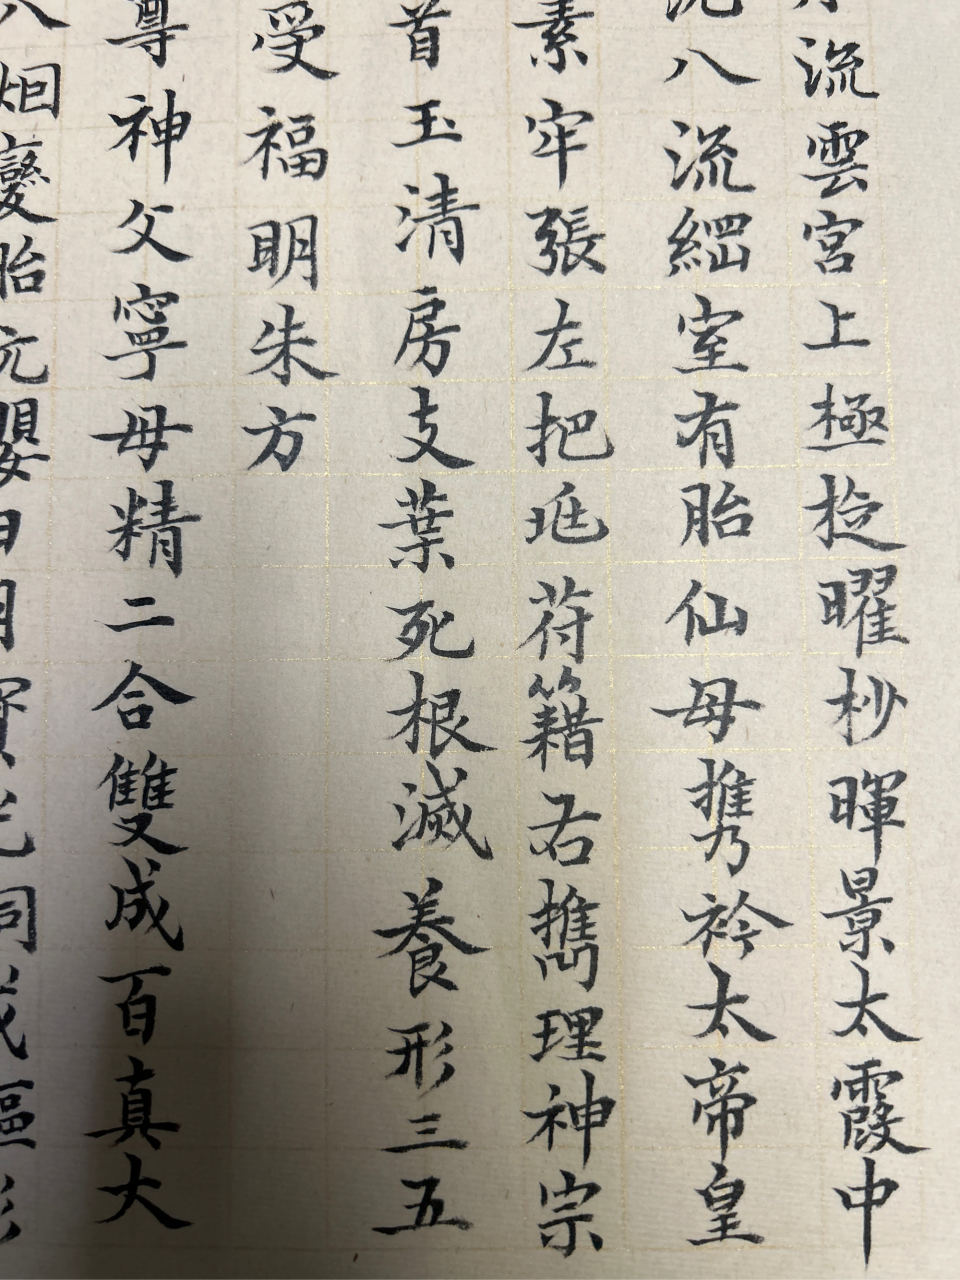 流雲宮上極挖曜杪暉景太霞中
八流綑室有胎仙母攜衿太帝皇
素牢張左把珽苻籍右擕理神宗
首玉清房支葉死根滅養形三五
受福明朱方
尊神父寧母精二合雙成百真大
八烟變胎元嬰日月寶光同成